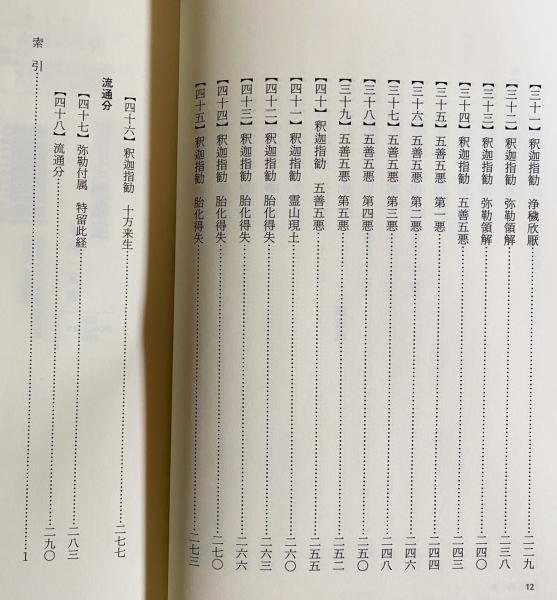 【三十一】 釈迦指勧 浄穢欣厭……二二九
【三十二】 釈迦指勧 弥勒領解……二三八
【三十三】 釈迦指勧 弥勒領解……二四〇
【三十四】 釈迦指勧 五善五悪……二四三
【三十五】 五善五悪 第一悪……二四四
【三十六】 五善五悪 第二悪……二四六
【三十七】 五善五悪 第三悪……二四八
【三十八】 五善五悪 第四悪……二五〇
【三十九】 五善五悪 第五悪……二五二
【四十】 釈迦指勧 五善五悪……二五五
【四十一】 釈迦指勧 霊山現土……二六〇
【四十二】 釈迦指勧 胎化得失……二六三
【四十三】 釈迦指勧 胎化得失……二六六
【四十四】 釈迦指勧 胎化得失……二七〇
【四十五】 釈迦指勧 胎化得失……二七三
12
【四十六】 釈迦指勧 十方来生……二七七
流通分
【四十七】 弥勒付属 特留此経……二八三
【四十八】 流通分……二九〇
索引……1